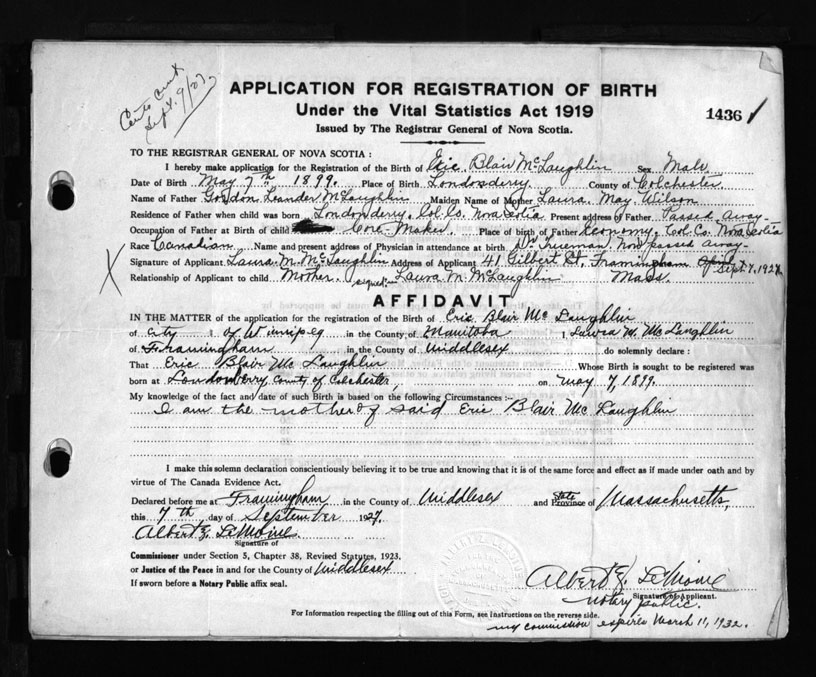 Sept. 9/27
APPLICATION FOR REGISTRATION OF BIRTH
Under the Vital Statistics Act 1919
1436
Issued by The Registrar General of Nova Scotia.
TO THE REGISTRAR GENERAL OF NOVA SCOTIA :
I hereby make application for the Registration of the Birth of Eric Blair McLaughlin Sex Male
Date of Birth May 7th 1899. Place of Birth Londonderry County of Colchester
Name of Father Gordon Leander McLaughlin Maiden Name of Mother Laura May Wilson
Residence of Father when child was born Londonderry. Col. Co. Nova Scotia Present address of Father Passed away-
Occupation of Father at Birth of child Core-Maker. Place of birth of Father Economy, Col. Co. Nova Scotia
Race Canadian Name and present address of Physician in attendance at birth Dr. Trueman Now passed away-
Signature of Applicant Laura M. McLaughlin Address of Applicant 41 Gilbert St. Framingham Sept 7, 1927
Relationship of Applicant to child Mother. signed: Laura M. McLaughlin Mass.
AFFIDAVIT
IN THE MATTER of the application for the registration of the Birth of Eric Blair McLaughlin
of City of Winnipeg in the County of Manitoba I, Laura M. McLaughlin
of Framingham in the County of Middlesex do solemnly declare :
That Eric Blair McLaughlin Whose Birth is sought to be registered was
born at Londonberry County of Colchester, on May 7, 1899.
My knowledge of the fact and date of such Birth is based on the following Circumstances :-
I am the mother of said Eric Blair McLaughlin
I make this solemn declaration conscientiously believing it to be true and knowing that it is of the same force and effect as if made under oath and by
virtue of The Canada Evidence Act.
Declared before me at Framingham in the County of Middlesex and State Province of Massachusetts,
this 7th day of September 1927.
Albert Z. LeMoine
Signature of
Commissioner under Section 5, Chapter 38, Revised Statutes, 1923.
or Justice of the Peace in and for the County of Middlesex
If sworn before a Notary Public affix seal.
Albert Z. LeMoine
Signature of Applicant.
notary public.
For Information respecting the filling out of this Form, see Instructions on the reverse side.
my commission expires March 11, 1932.